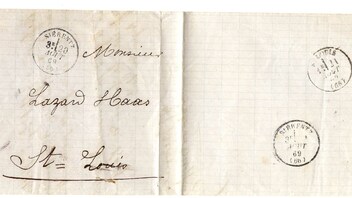 SIERENTZ
AOUT
69
(66)
Monsieur
Lazard Haas
St= Louis
LOUIS
AOUT
69
(66)
SIERENTZ
AOUT
69
(66)